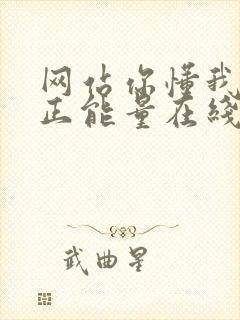 网站你懂我
正能量在线
武曲星